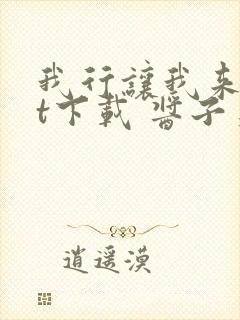 我行讓我来
t下載 醬子
逍遥漠